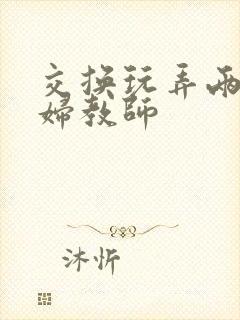 交换玩弄两
婦教師
沐忻